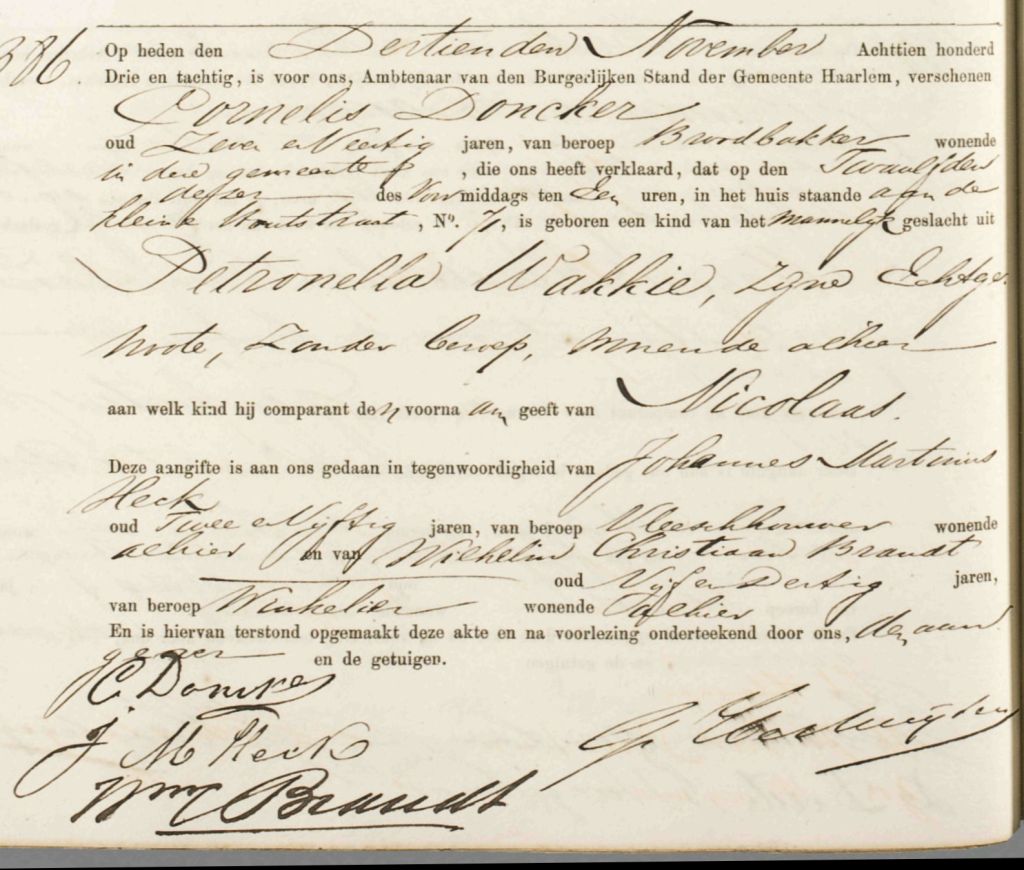 386.
Op heden den Dertienden November Achttien honderd
Drie en tachtig, is voor ons, Ambtenaar van den Burgerlijken Stand der Gemeente Haarlem, verschenen
Cornelis Doncker
oud Zeven en Veertig jaren, van beroep Broodbakker wonende
in deze gemeente, die ons heeft verklaard, dat op den Twaalfden
dezer des Voormiddags ten Een uren, in het huis staande aan de
kleine Houtstraat, No. 7, is geboren een kind van het Mannelijk geslacht uit
Petronella Wakkie, zijne Echtge-
noote, Zonder beroep, wonende alhier
aan welk kind hij comparant den voornaam geeft van Nicolaas.
Deze aangifte is aan ons gedaan in tegenwoordigheid van Johannes Martinus
Heck
oud Twee en Vijftig jaren, van beroep Vleeschhouwer wonende
alhier en van Wilhelm Christiaan Brandt
oud Vijf en Dertig jaren,
van beroep Winkelier wonende alhier
En is hiervan terstond opgemaakt deze akte en na voorlezing onderteekend door ons, den aan
gever en de getuigen.
C. Doncker
J M Heck
Wm C Brandt